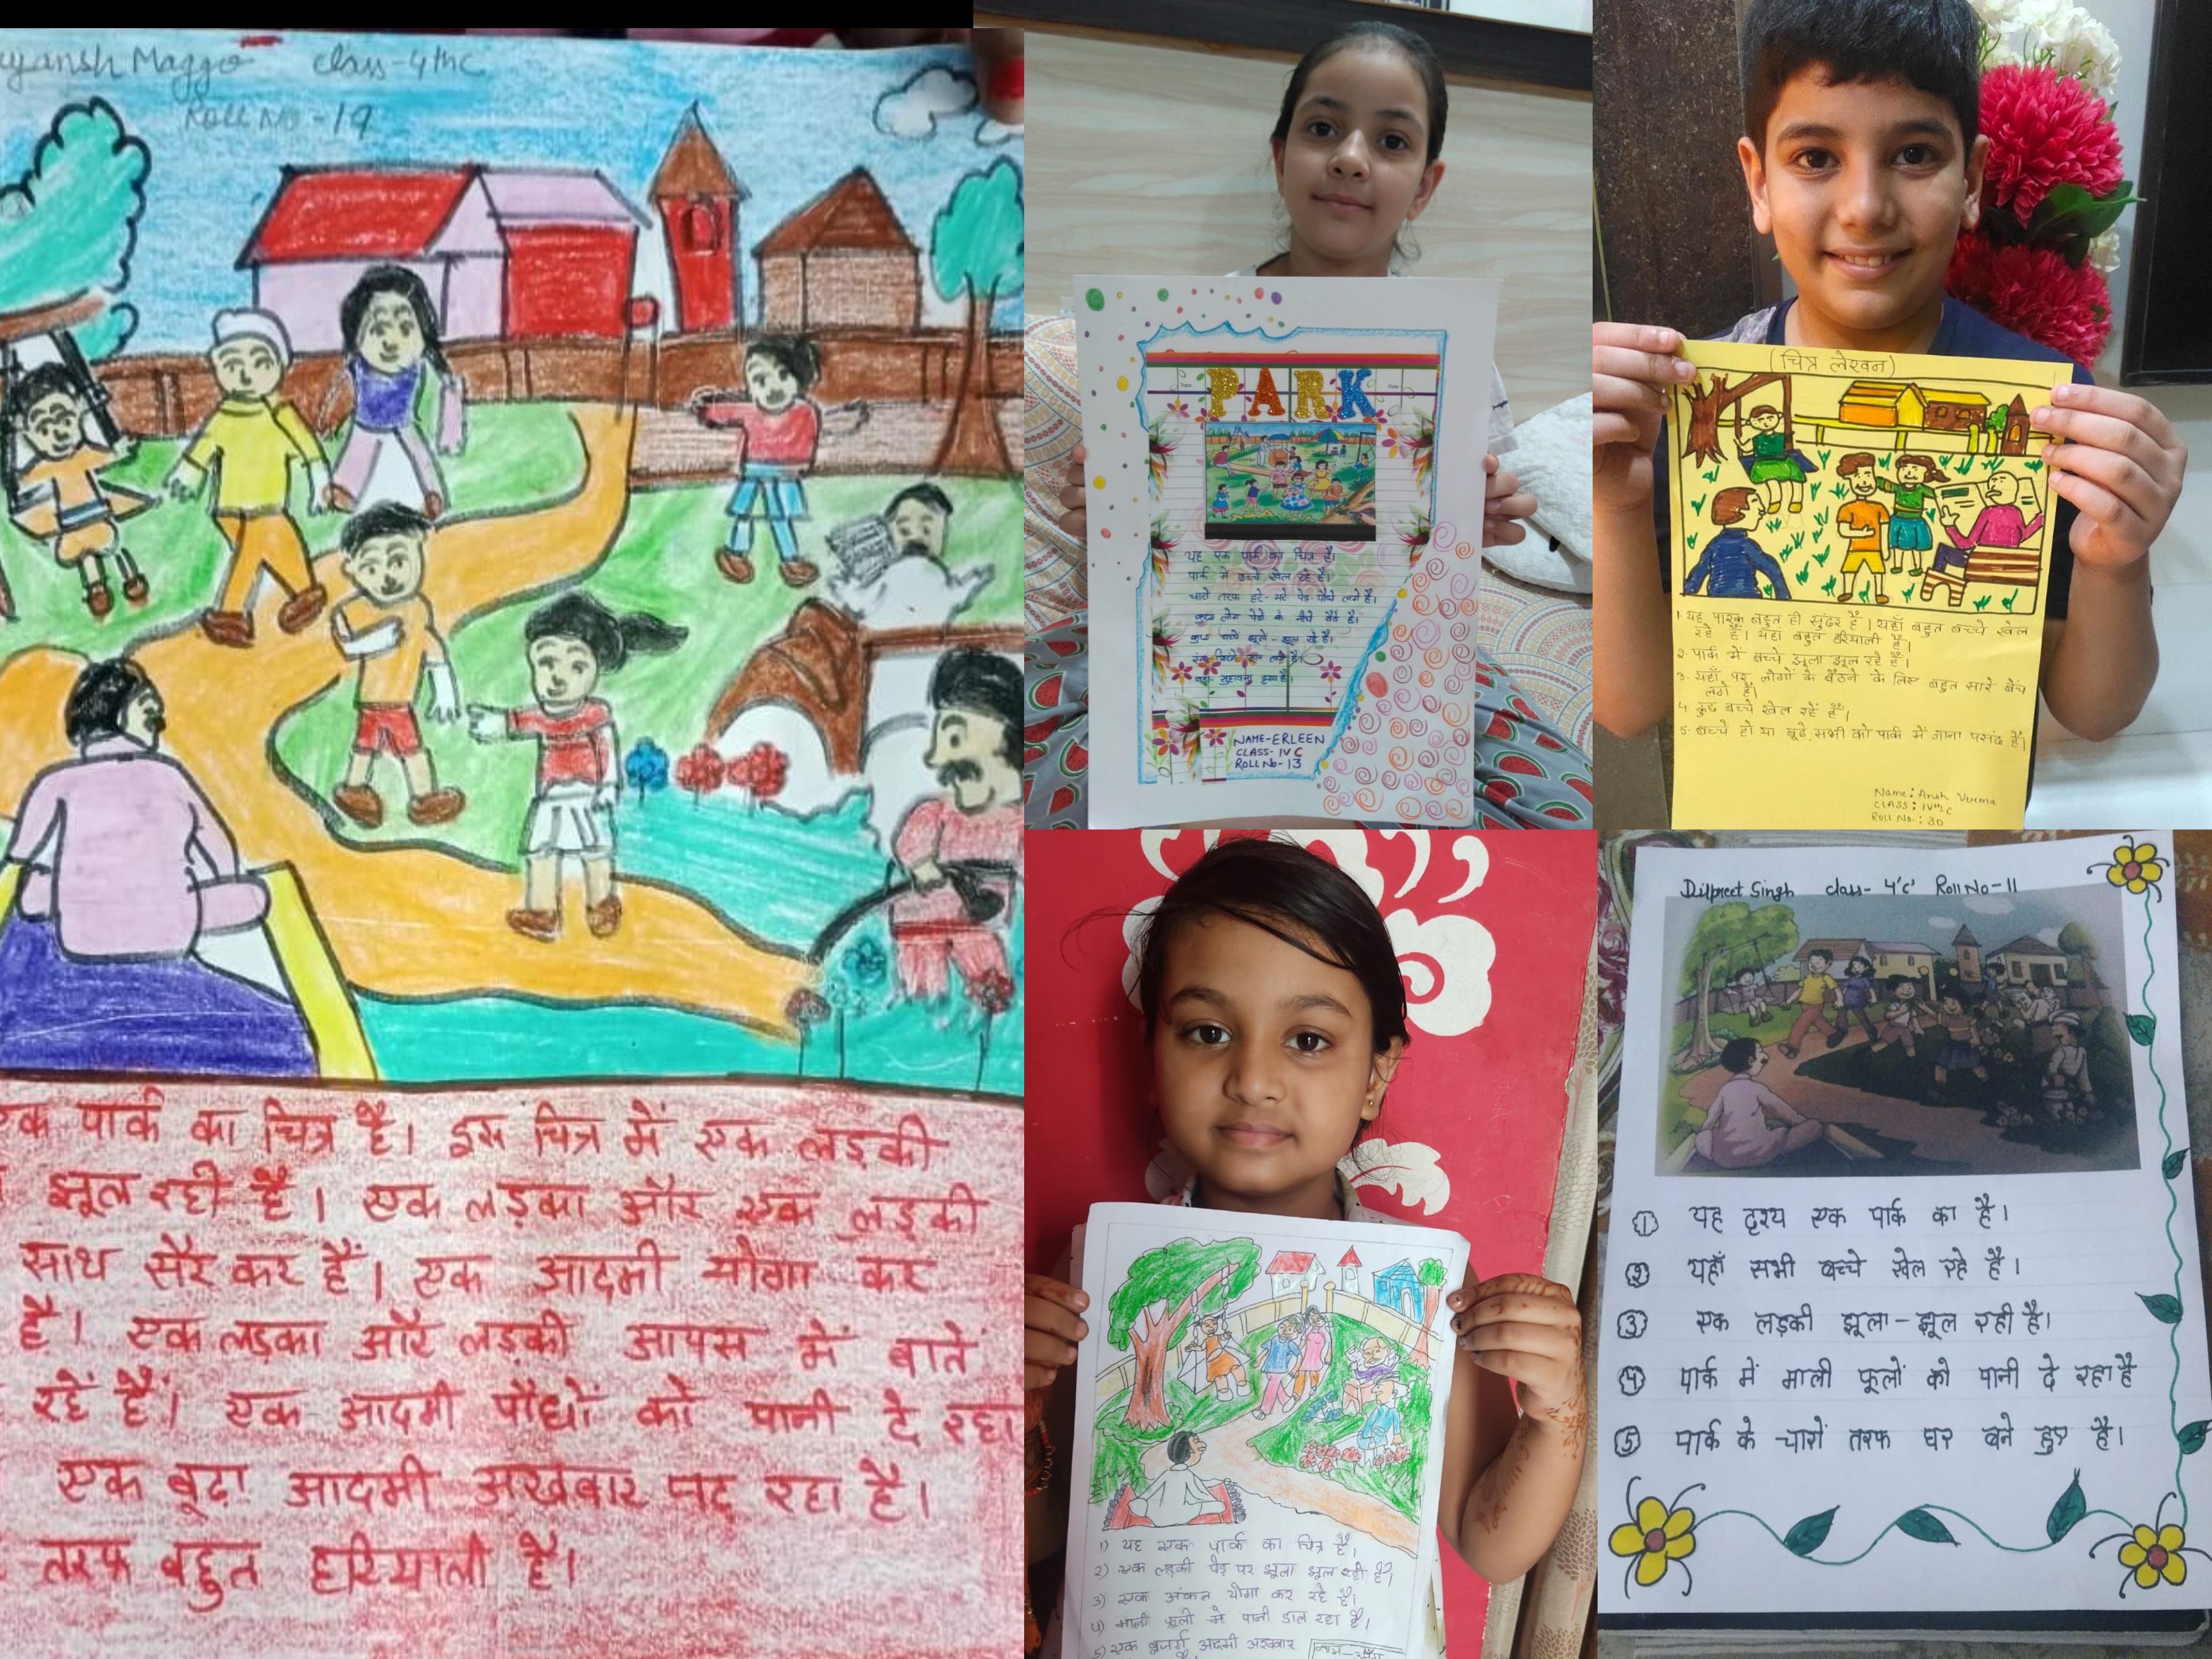 Maggo class-4thc
Roll No-19
एक पार्क का चित्र है। इस चित्र में एक लड़की
झूल रही है। एक लड़का और एक लड़की
साथ सैर कर हैं। एक आदमी योगा कर
है। एक लड़का और लड़की आपस में बातें
रहें हैं। एक आदमी पौधों को पानी दे रहा
एक बूढ़ा आदमी अखबार पढ़ रहा है।
तरफ बहुत हरियाली है।
PARK
यह एक पार्क का चित्र है।
पार्क में बच्चे खेल रहे है।
चारो तरफ हरे-भरे पेड़ पौधे लगे है।
कुछ लोग पेड़ो के नीचे बैठे है।
कुछ बच्चे झूले-झूल रहे है।
NAME-ERLEEN
CLASS-IV C
ROLL No-13
(चित्र लेखन)
1. यह पारक बहुत ही सुंदर है। यहाँ बहुत बच्चे खेल
रहे हैं। यहाँ बहुत हरियाली है।
2. पार्क में बच्चे झूला झूल रहे हैं।
3. यहाँ पर लोगों के बैठने के लिए बहुत सारे बेंच
लगे हैं।
4. कुछ बच्चे खेल रहें हैं।
5. बच्चे हो या बूढ़े, सभी को पार्क में जाना पसंद है।
Name: Ansh Verma
CLASS: IVth C
ROLL No.: 30
1) यह एक पार्क का चित्र है।
2) एक लड़की पेड़ पर झूला झूल रही है।
3) एक अंकल योगा कर रहे है।
4) माली फूलो में पानी डाल रहा है।
5) एक बुजर्ग आदमी अख्बार
Dilpreet Singh class- 4'c' Roll No-11
① यह दृश्य एक पार्क का है।
② यहाँ सभी बच्चे खेल रहे है।
③ एक लड़की झूला-झूल रही है।
④ पार्क में माली फूलों को पानी दे रहा है
⑤ पार्क के चारों तरफ घर बने हुए है।